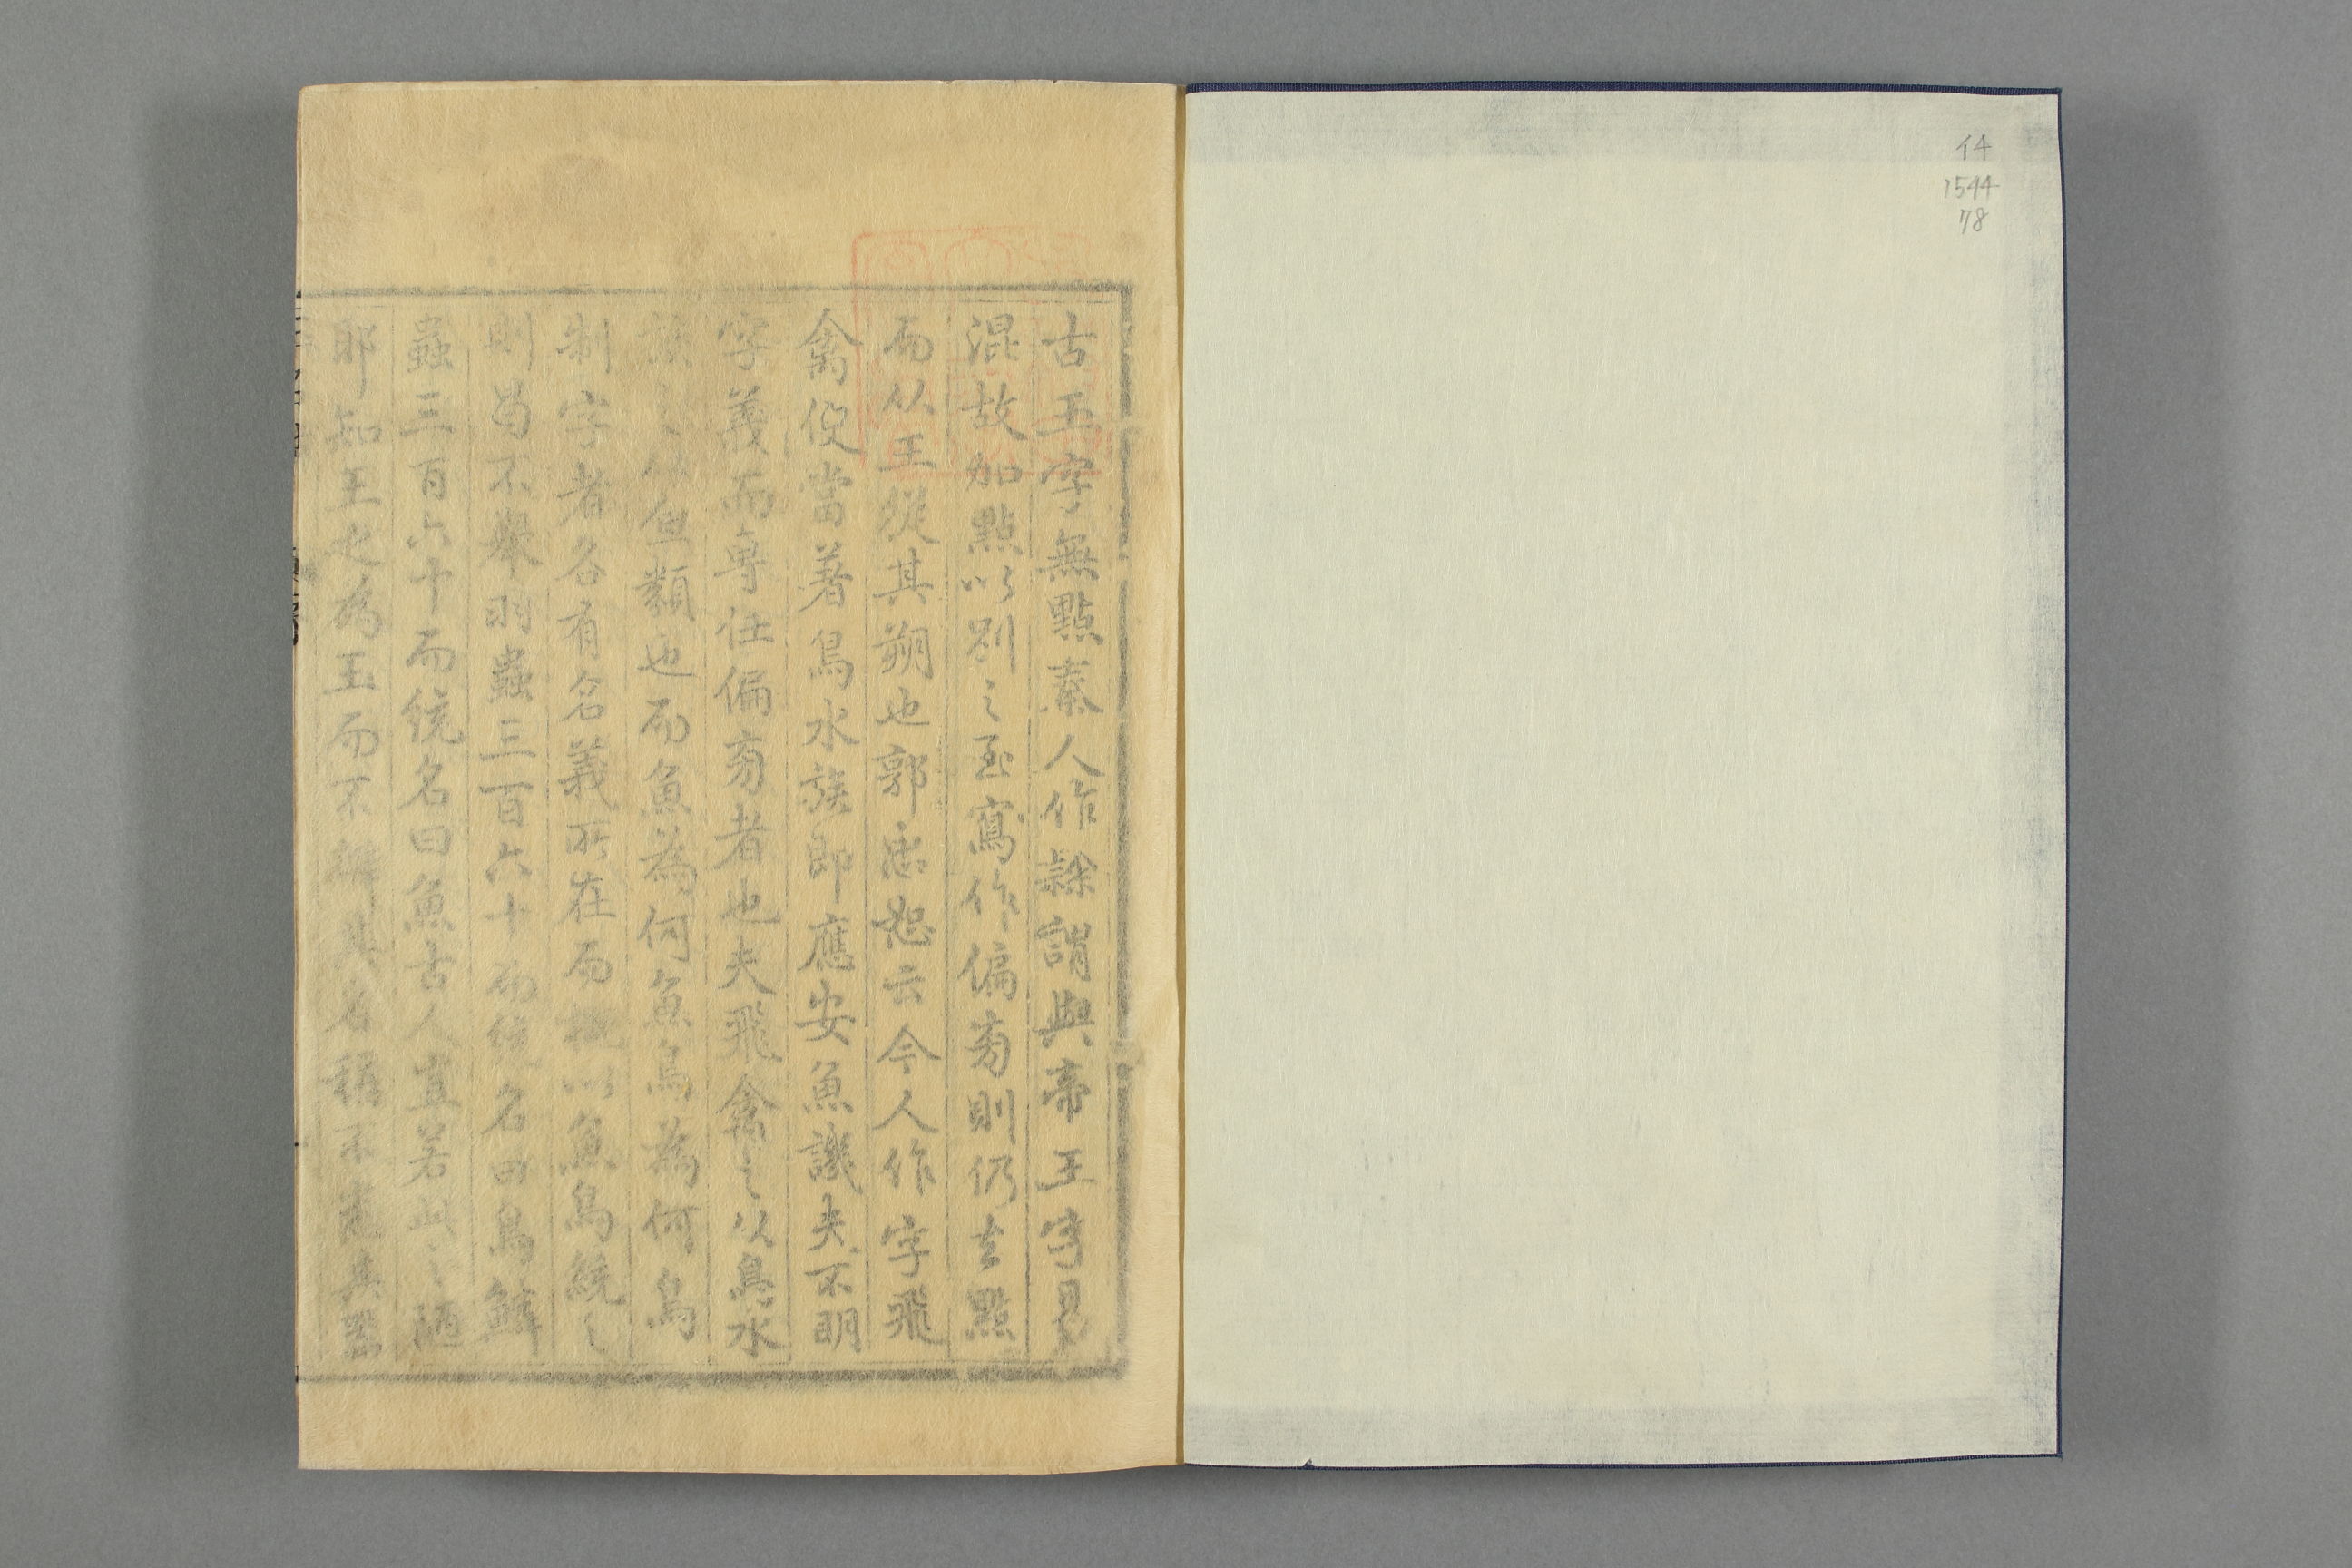 イ4
1544
78
古玉字無點秦人作隸謂與帝王字見
混故加點以別之至寫作偏旁則仍去點
而从王從其朔也郭忠恕云今人作字飛
禽便當著鳥水族即應安魚譏夫不明
字義而專任偏旁者也夫飛禽之以鳥水
族之以魚類也而魚為何魚鳥為何鳥
制字者各有名義所在而概以魚鳥統之
則苟不舉羽蟲三百六十而統名曰鳥鱗
蟲三百六十而統名曰魚古人豈若此之陋
耶知玉之為玉而不辨其名稱不究其器